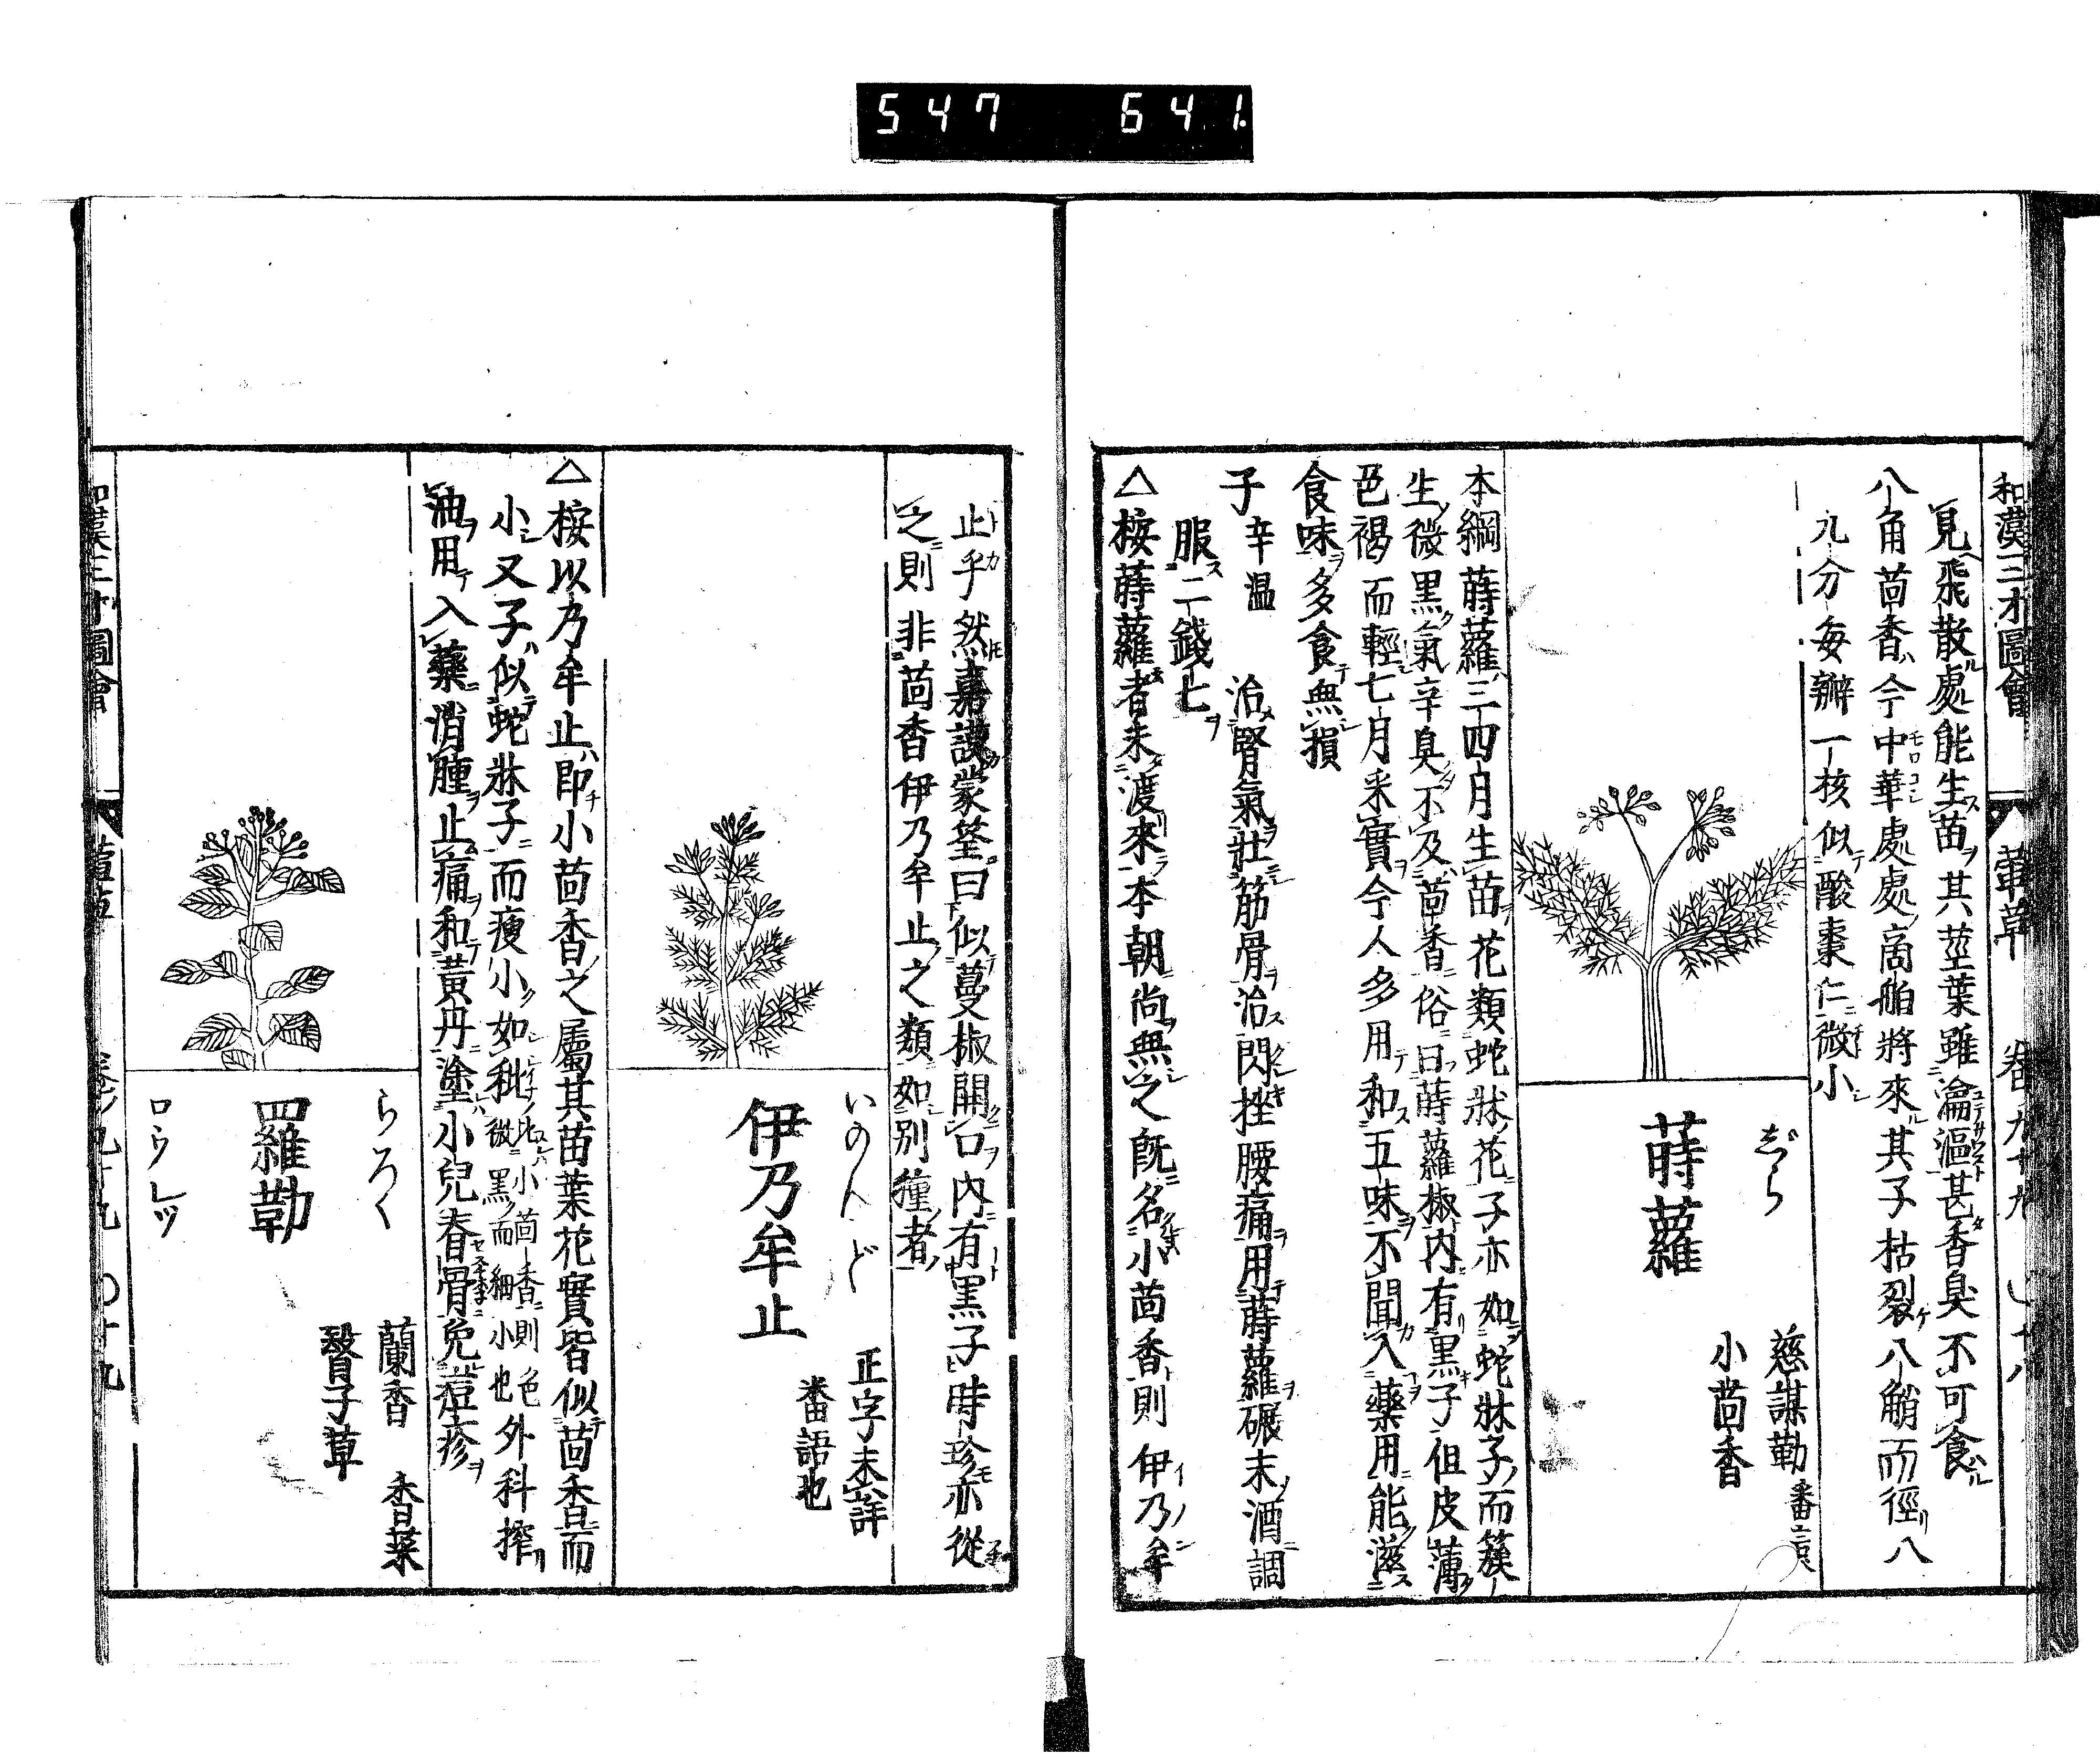 547 641
和漢三才圖會 葷草 卷ノ九十九 ○十八
見飛散處能生苗其莖葉雖瀹漚甚香臭不可食
八角茴香今中華處處商舶將來其子枯裂八觜而徑八
九分每瓣一核似酸棗仁微小
じら
蒔蘿
慈謀勒 番言
小茴香
本綱蒔蘿三四月生苗花類蛇牀花子亦如蛇牀子而簇
生微黒氣辛臭不及茴香俗曰蒔蘿椒内有黒子但皮薄
色褐而輕七月釆實今人多用和五味不聞入藥用能滋
食味多食無損
子 辛温 治腎氣壯筋骨治閃挫腰痛用蒔蘿碾末酒調
服二錢匕
△桉蒔蘿者未渡來本朝尚無之旣名小茴香則伊乃牟
止乎然嘉謨蒙筌曰似蔓椒開口内有黒子時珍亦從
之則非茴香伊乃牟止之類如別種者
いのんど
伊乃牟止
正字未詳
番語也
△桉以乃牟止即小茴香之屬其苗葉花實皆似茴香而
小又子似蛇牀子而痩小如秕比小茴香則色微黒而細小也外科搾
油用入藥消腫止痛和黃丹塗小兒脊骨免痘疹
らろく
羅勒
ロウレツ
蘭香 香菜
翳子草
和漢三才圖會 葷草 卷ノ九十九 ○十九